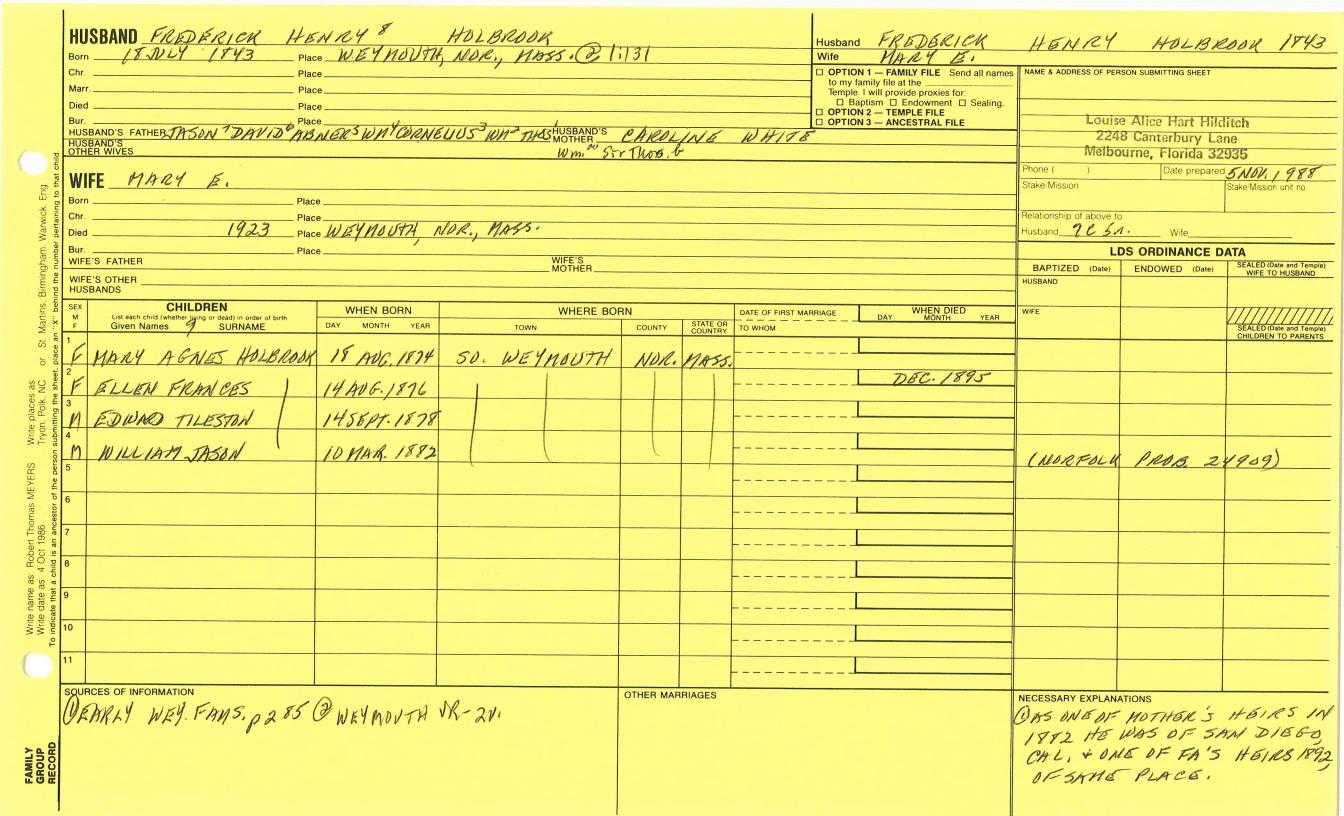 HUSBAND FREDERICK HENRY 8 HOLBROOK
Born 18 JULY 1843 Place WEYMOUTH, NOR., MASS. @ 1:131
Chr. Place
Marr. Place
Died Place
Bur. Place
HUSBAND'S FATHER JASON 7 DAVID 6 AGNER 5 WM 4 CORNELIUS 3 WM 2 THOS HUSBAND'S MOTHER CAROLINE WHITE
HUSBAND'S OTHER WIVES
Husband FREDERICK HENRY HOLBROOK 1843
Wife MARY E.
☐ OPTION 1 — FAMILY FILE Send all names
to my family file at the
Temple. I will provide proxies for:
☐ Baptism ☐ Endowment ☐ Sealing.
☐ OPTION 2 — TEMPLE FILE
☐ OPTION 3 — ANCESTRAL FILE
NAME & ADDRESS OF PERSON SUBMITTING SHEET
Louise Alice Hart Hilditch
2248 Canterbury Lane
Melbourne, Florida 32935
Phone ( ) Date prepared 5 NOV. 1988
Stake/Mission Stake/Mission unit no.
Relationship of above to
Husband Wife
WIFE MARY E.
Born Place
Chr. Place
Died 1923 Place WEYMOUTH, NOR., MASS.
Bur. Place
WIFE'S FATHER WIFE'S MOTHER
WIFE'S OTHER HUSBANDS
LDS ORDINANCE DATA
BAPTIZED (Date) ENDOWED (Date) SEALED (Date and Temple) WIFE TO HUSBAND
HUSBAND
WIFE
SEALED (Date and Temple) CHILDREN TO PARENTS
SEX M F
CHILDREN
List each child (whether living or dead) in order of birth
Given Names 9 SURNAME
WHEN BORN
DAY MONTH YEAR
WHERE BORN
TOWN COUNTY STATE OR COUNTRY
DATE OF FIRST MARRIAGE
TO WHOM
WHEN DIED
DAY MONTH YEAR
1 F MARY AGNES HOLBROOK 18 AUG. 1874 SO. WEYMOUTH NOR. MASS.
2 F ELLEN FRANCES 14 AUG. 1876 DEC. 1895
3 M EDWARD TILESTON 14 SEPT. 1878
4 M WILLIAM JASON 10 MAR. 1882
(NORFOLK PROB. 24909)
5
6
7
8
9
10
11
SOURCES OF INFORMATION
① EARLY WEY. FAMS. p 285 ② WEYMOUTH VR-2V.
OTHER MARRIAGES
NECESSARY EXPLANATIONS
① AS ONE OF MOTHER'S HEIRS IN
1882 HE WAS OF SAN DIEGO,
CAL. & ONE OF FA'S HEIRS 1892,
OF SAME PLACE.
Write name as: Robert Thomas MEYERS Write places as: Tryon, Polk, NC or St. Martins, Birmingham, Warwick, Eng.
Write date as: 4 Oct 1986
To indicate that a child is an ancestor of the person submitting the sheet, place an "X" behind the number pertaining to that child
FAMILY
GROUP
RECORD